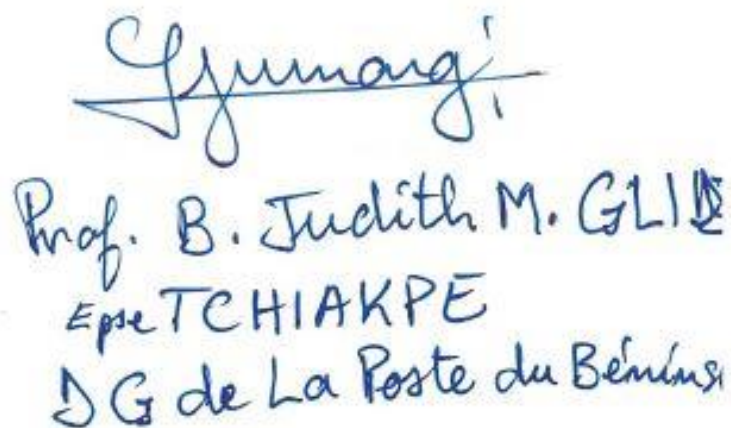 Prof. B. Judith M.
Epse TCHIAKPE
DG de La Poste du Bénin